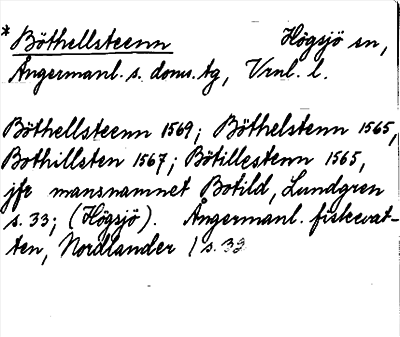 * Böthellsteenn Högsjö sn,
Ångermanl. s. doms. tg, Vrnl. l.
Böthellsteenn 1569; Böthelstenn 1565,
Bothillsten 1567; Bötillestenn 1565,
jfr mansnamnet Botild, Lundgren
s. 33; (Högsjö). Ångermanl. fiskevat-
ten, Nordlander 1 s. 32